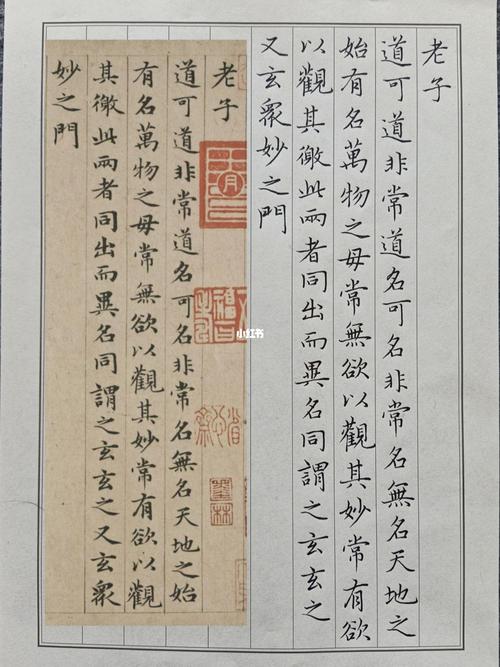 老子
道可道非常道名可名非常名無名天地之
始有名萬物之母常無欲以觀其妙常有欲
以觀其徼此兩者同出而異名同謂之玄玄之
又玄眾妙之門
老子
道可道非常道名可名非常名無名天地之始
有名萬物之母常無欲以觀其妙常有欲以觀
其徼此兩者同出而異名同謂之玄玄之又玄眾
妙之門
墨林
小红书